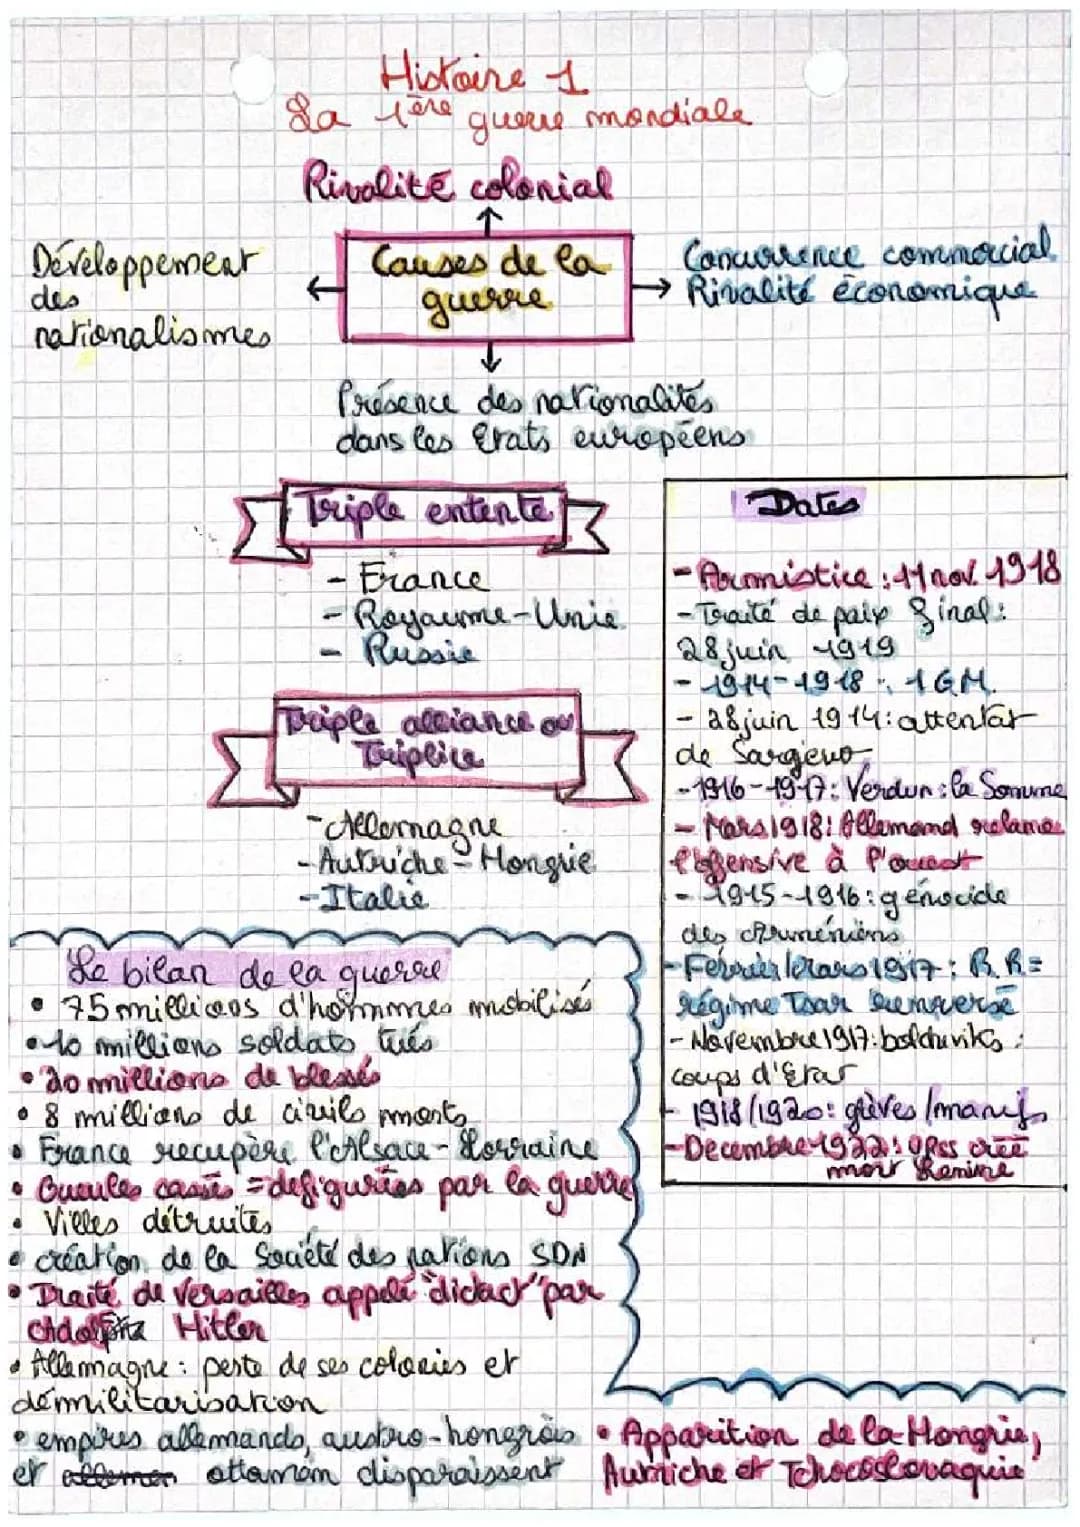 Histoire 1
La 1ère guerre mondiale
Rivalité colonial
Développement
des
nationalismes
Causes de la
guerre
Concurrence commercial
Rivalité économique
Présence des nationalités
dans les Etats européens
Triple entente
- France
- Royaume-Unie
- Russie
Triple alliance ou
Triplice
- Allemagne
- Autriche - Hongrie
- Italie
Dates
- Armistice : 11 nov. 1918
- Traité de paix final :
28 juin 1919
- 1914-1918 : 1 GM.
- 28 juin 1914 : attentat
de Sargevo
- 1916-1917 : Verdun : la Somme
- Mars 1918 : Allemand relance
l'offensive à l'ouest
- 1915-1916 : génocide
des Arméniens
- Février/Mars 1917 : R.R =
régime Tsar renversé
- Novembre 1917 : bolcheviks :
coups d'Etat
- 1918/1920 : grèves/manifs
- Decembre 1922 : URSS créé
mort Lenine
Le bilan de la guerre
• 75 millions d'hommes mobilisés
• 10 millions soldats tués
• 20 millions de blessés
• 8 millions de civils morts
• France recupère l'Alsace-Lorraine
• Gueules cassés = défigurées par la guerre
• Villes détruites
• création de la Société des nations SDN
• Traité de Versailles appelé "dictact" par
Hitler
• Allemagne : perte de ses colonies et
démilitarisation
• empires allemands, austro-hongrois
et ottoman disparaissent
• Apparition de la Hongrie,
Autriche et Tchocoslovaquie